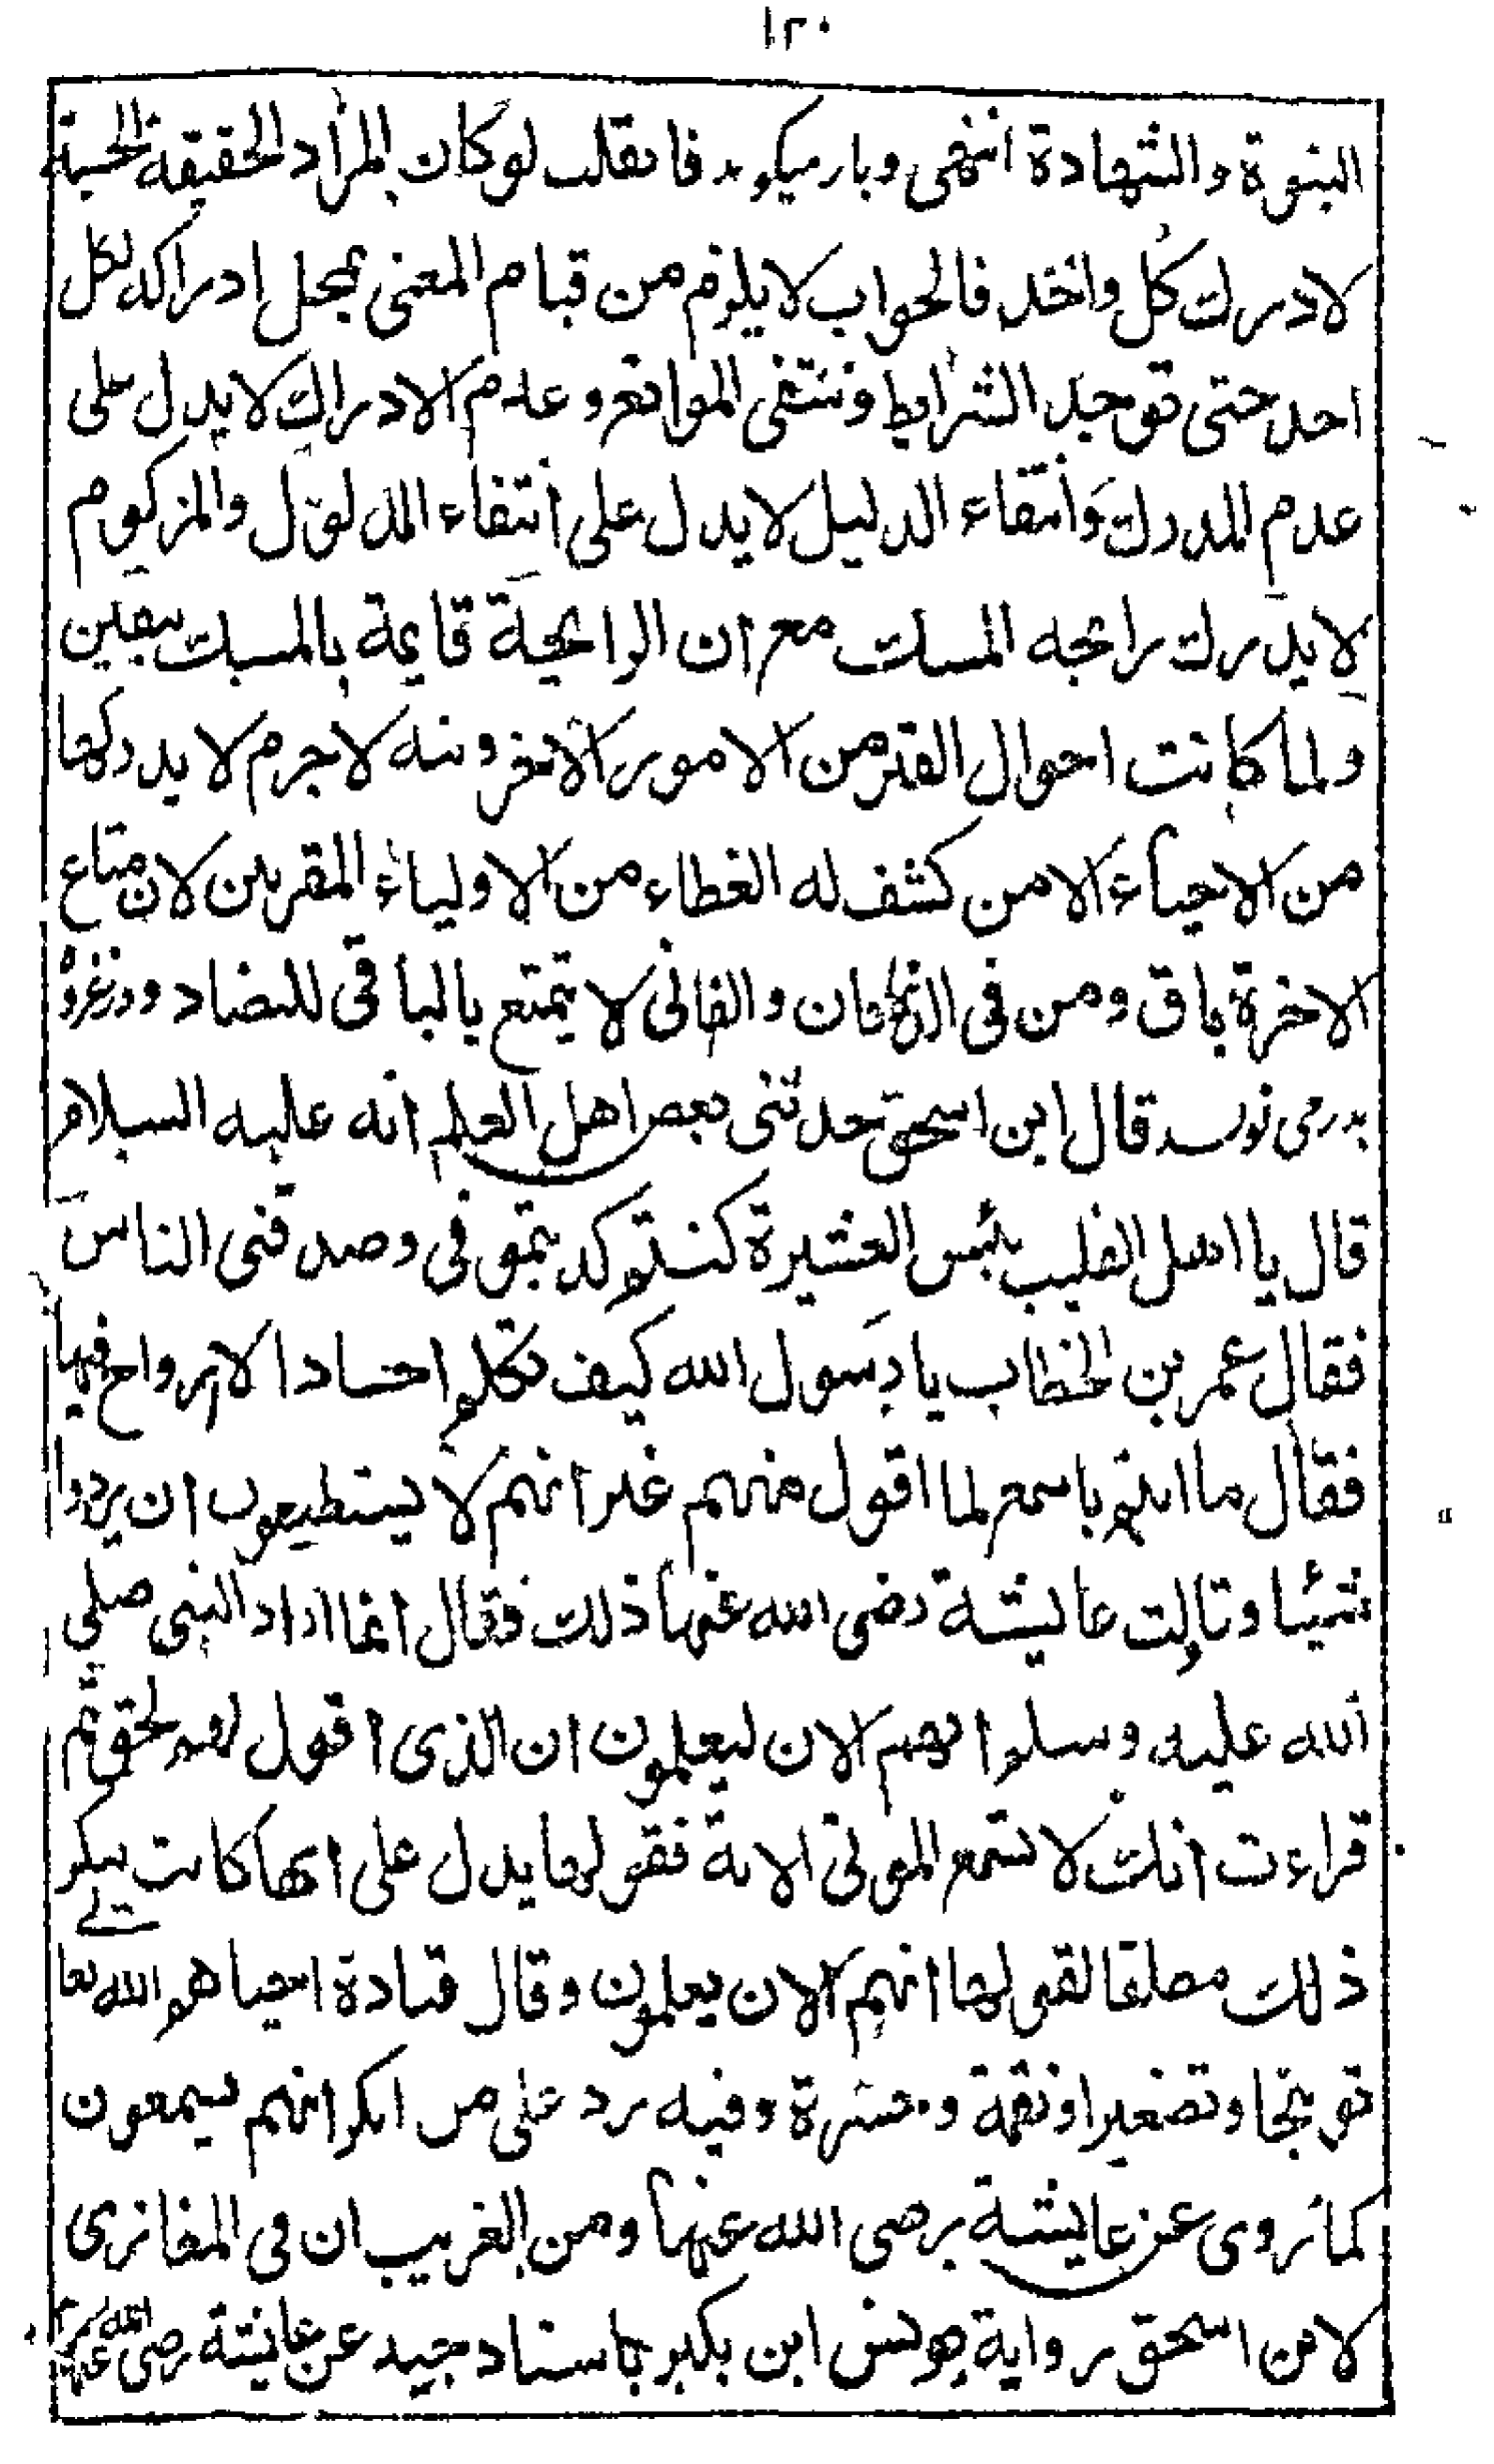 ١٢٠
البنوة والشهادة انتهى وبار ميكويد فان قلت لو كان المراد الحقيقة الحسية
لادرك كل واحد فالجواب لا يلزم من قيام المعنى بمحل ادراكه لكل
احد حتى توجد الشرايط وتنتفى الموانع وعدم الادراك لا يدل على
عدم المدرك وانتفاء الدليل لا يدل على انتفاء المدلول والمزكوم
لا يدرك رائحه المسك مع ان الرايحة قايمة بالمسك بيقين
ولما كانت احوال القبر من الامور الاخرونه لاجرم لا يدركها
من الاحياء الا من كشف له الغطاء من الاولياء المقربين لان متاع
الاخرة باق ومن فى الدنيا فان والفانى لا يتمتع بالباقى للتضاد ودر غزوهٔ
بدر مى نويسد قال ابن اسحق حدثنى بعض اهل العلم انه عليه السلام
قال يا اهل القليب بئس العشيرة كنتم كذبتمونى وصدقنى الناس
فقال عمر بن الخطاب يا رسول الله كيف تكلم اجسادا لا ارواح فيها
فقال ما انتم باسمع لما اقول منهم غير انهم لا يستطيعون ان يردوا
شيئا وتاولت عايشة رضى الله عنها ذلك فقال انما اراد النبى صلى
الله عليه وسلم انهم الان ليعلمون ان الذى اقول لهم لحق ثم
قراءت انك لا تسمع الموتى الاية فقولها يدل على انها كانت تنكر
ذلك مطلقا لقولها انهم الان يعلمون وقال قتادة احياهم الله تعالى
توبيخا وتصغيرا ونقمة وحسرة وفيه رد على من انكر انهم يسمعون
كما روى عن عايشة رضى الله عنها ومن الغريب ان فى المغازى
لابن اسحق رواية يونس ابن بكير باسناد جيد عن عايشة رضى الله عنها